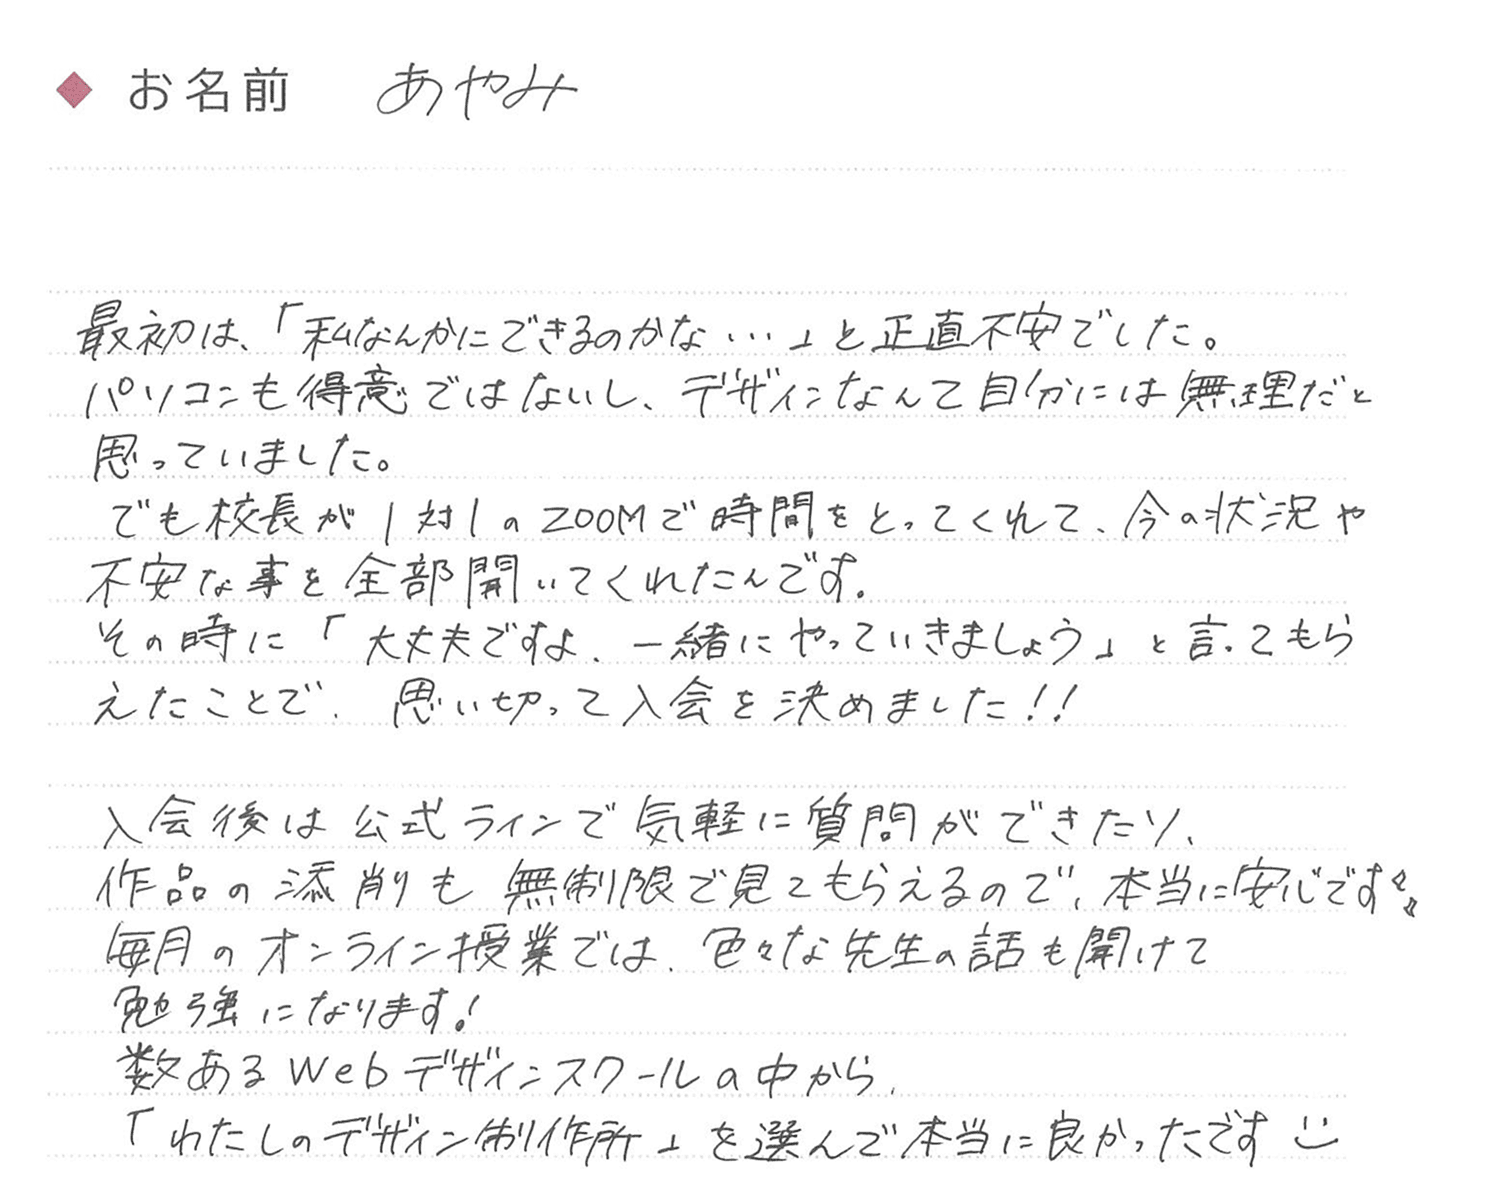 お名前 あやみ
最初は、「私なんかにできるのかな…」と正直不安でした。
パソコンも得意ではないし、デザインなんて自分には無理だと
思っていました。
でも校長が1対1のZOOMで時間をとってくれて、今の状況や
不安な事を全部聞いてくれたんです。
その時に「大丈夫ですよ、一緒にやっていきましょう」と言ってもら
えたことで、思い切って入会を決めました!!
入会後は公式ラインで気軽に質問ができたり、
作品の添削も無制限で見てもらえるので、本当に安心です
毎月のオンライン授業では、色々な先生の話も聞けて
勉強になります!
数あるWebデザインスクールの中から、
「わたしのデザイン制作所」を選んで本当に良かったです